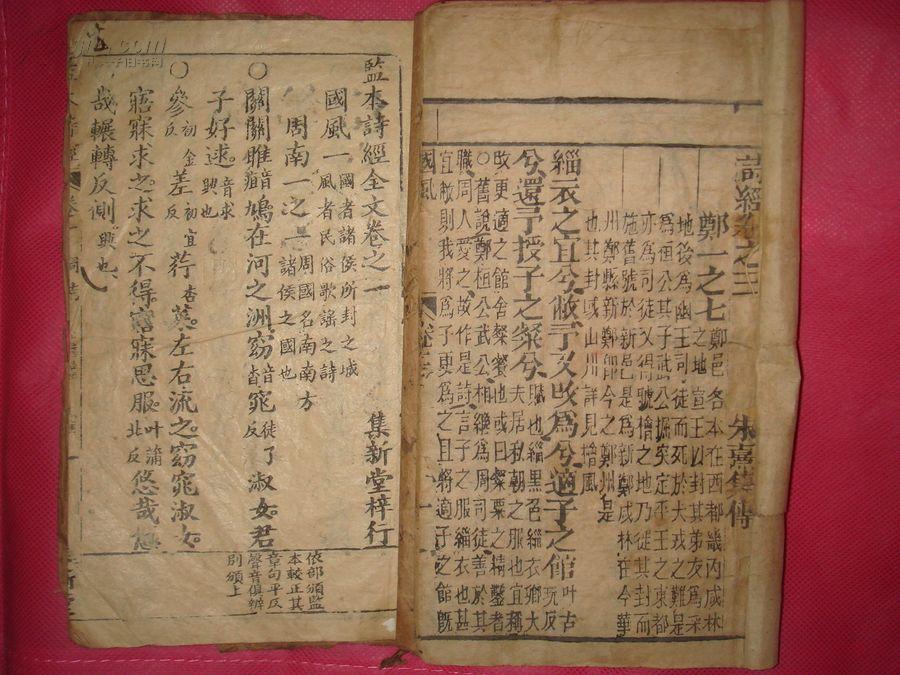 詩經卷之三
朱熹集傳
鄭一之七
鄭邑名本在西都畿內咸林
之地宣王以封其弟友為采
地後為幽王司徒而死於犬戎之難是
為桓公其子武公掘突定平王於東都
亦為司徒又得虢檜之地乃徙其封而
施舊號於新邑是為新鄭咸林在今華
州鄭縣新鄭即今之鄭州是
也其封域山川詳見檜風
緇衣之宜兮敝予又改為兮適子之館
叶古
玩反
兮還予授子之粲兮
賦也緇黑色緇衣卿大
夫居私朝之服也宜稱
改更適之館舍粲餐也或曰粲粟之精鑿者
○舊說鄭桓公武公相繼為周司徒善於其
職周人愛之故作是詩言子之服緇衣也甚
宜敝則我將為子更為之且將適子之館既
國風
一
監本詩經全文卷之一
集新堂梓行
國風一
國者諸侯所封之域
風者民俗歌謠之詩
周南一之一
周國名南南方
諸侯之國也
○關關雎音疽鳩在河之洲窈音杳窕徒了反淑女君
子好逑音求興也
○參初金反差初宜反荇杏菜左右流之窈窕淑女
寤寐求之求之不得寤寐思服叶蒲北反悠哉悠
哉輾轉反側興也
依部頒監
本較正其
章句平仄
聲音俱辨
別頒上